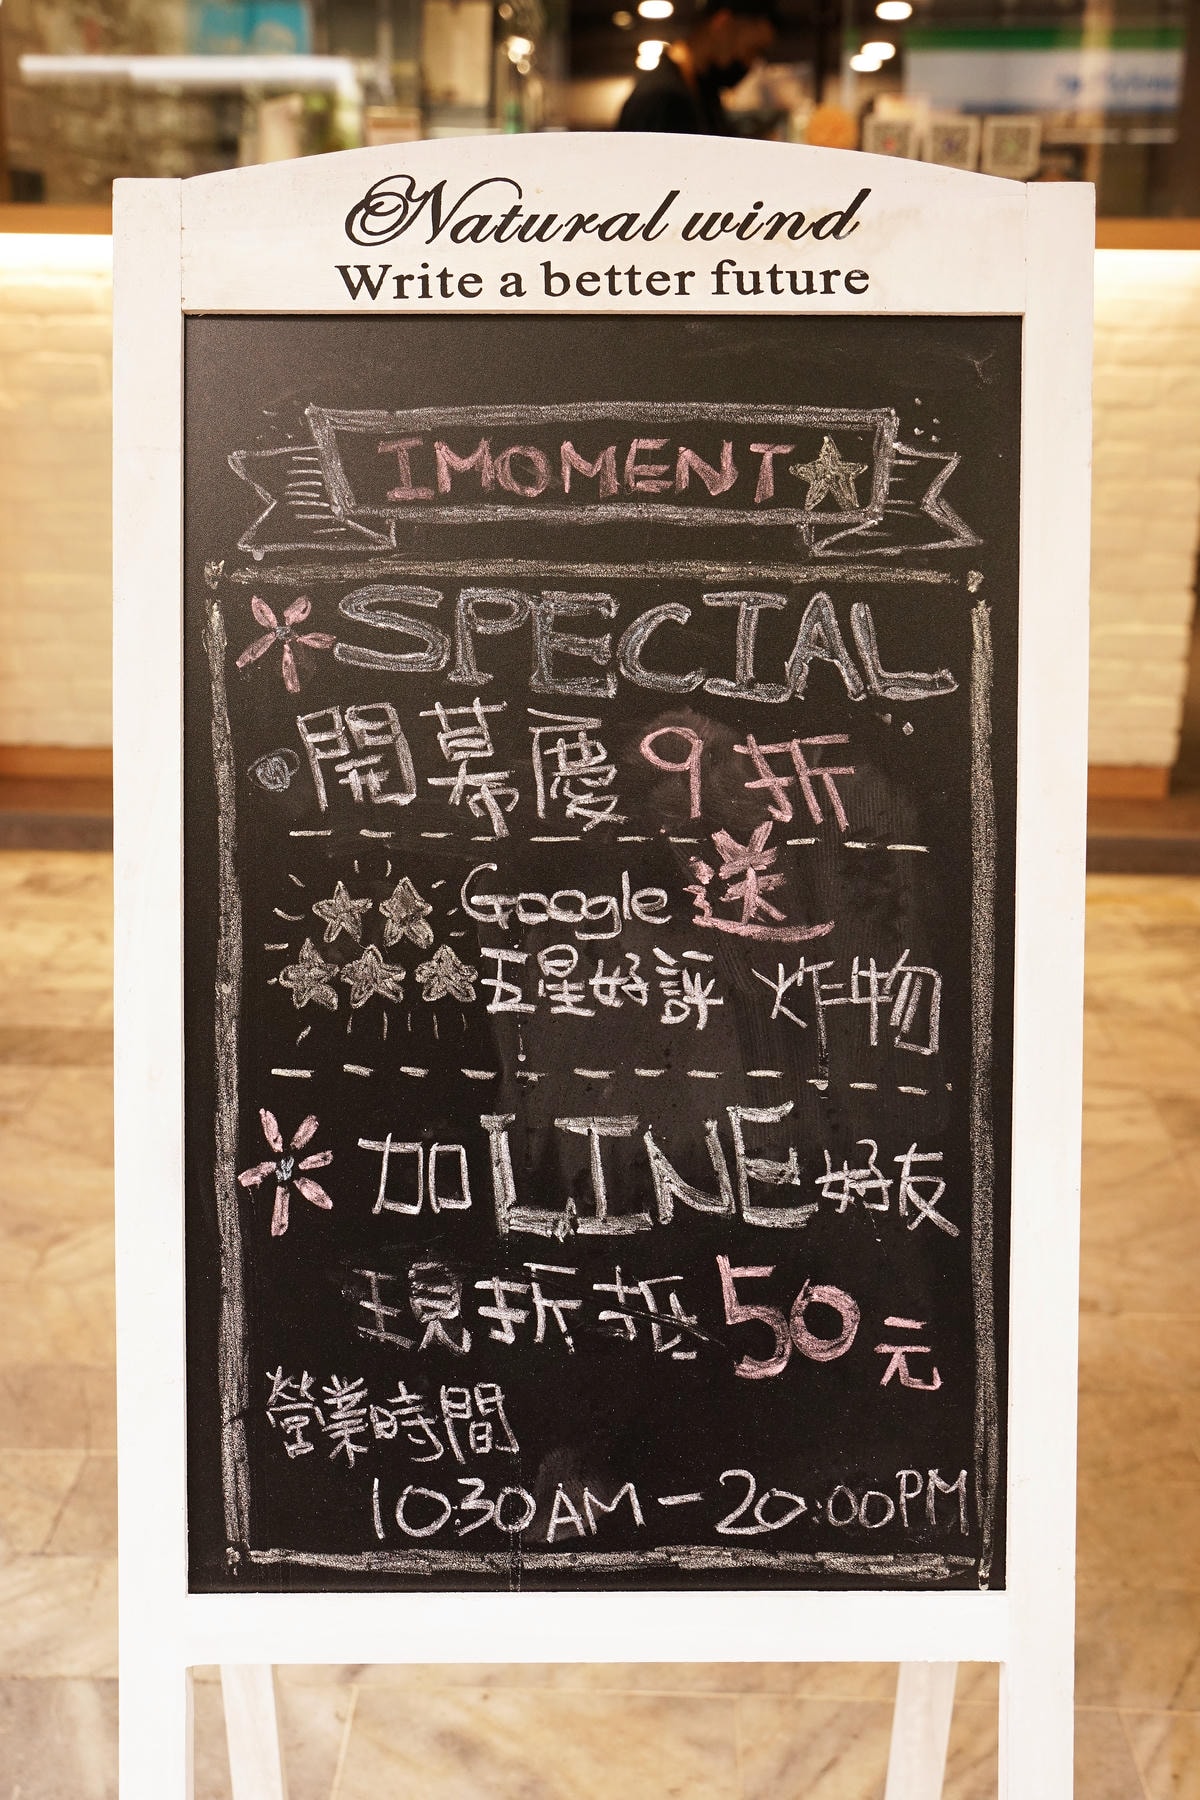 Natural wind
Write a better future
IMOMENT
SPECIAL
開幕慶9折
Google 送
五星好評 炸物
加LINE好友
現折抵50元
營業時間
10:30AM－20:00PM